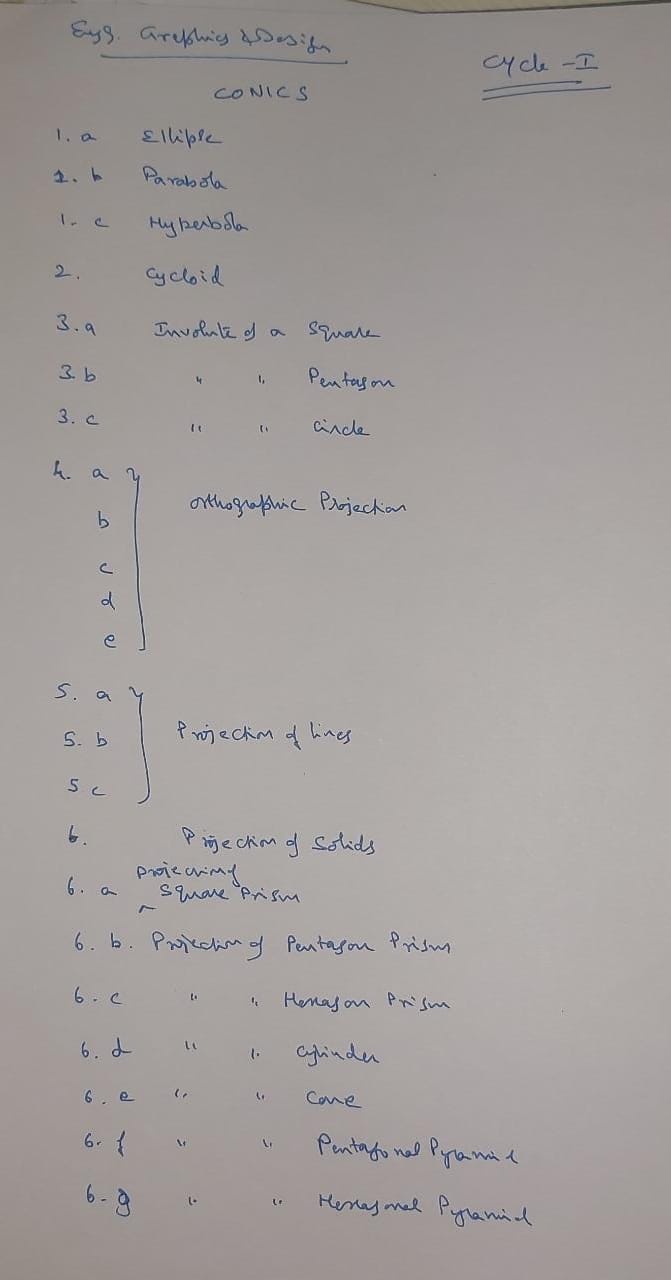 Eng. Graphics & Design
Cycle - I
CONICS
1. a Ellipse
1. b Parabola
1. c Hyperbola
2. Cycloid
3. a Involute of a Square
3. b " " Pentagon
3. c " " Circle
4. a
b
Orthographic Projection
c
d
e
5. a
5. b Projection of lines
5 c
6. Projection of Solids
6. a Projection of Square Prism
6. b. Projection of Pentagon Prism
6. c " " Hexagon Prism
6. d " " Cylinder
6. e " " Cone
6. f " " Pentagonal Pyramid
6-g " " Hexagonal Pyramid